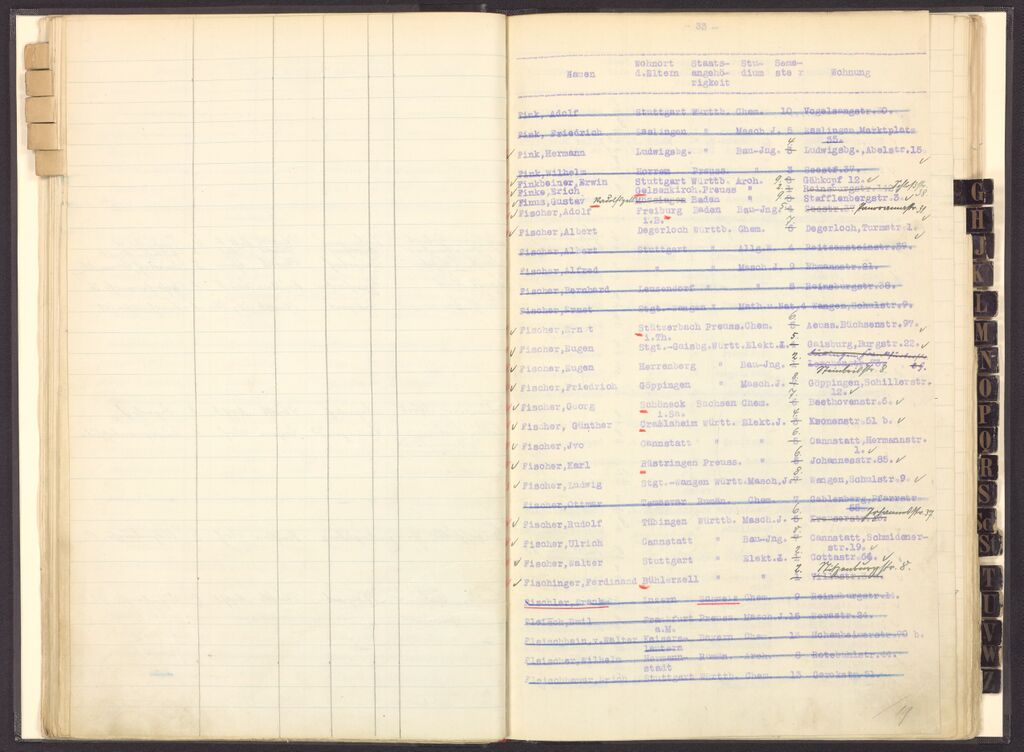 - 33 -
Namen Wohnort d.Eltern Staats-angehö-rigkeit Stu-dium Seme-ster Wohnung
Fink, Adolf Stuttgart Württb. Chem. 10 Vogelsangstr.20.
Fink, Friedrich Esslingen " Masch.J. 5 Esslingen,Marktplatz
Fink,Hermann Ludwigsbg. " Bau-Jng. 4 Ludwigsbg.,Abelstr.15.
Fink,Wilhelm Horrem Preuss. " 3 Seestr.37.
Finkbeiner,Erwin Stuttgart Württb. Arch. 9. Gähkopf 12.
Finke,Erich Gelsenkirch.Preuss " 2. Reinsburgstr.
Finus,Gustav Baden " 9. Stafflenbergstr.3.
Fischer,Adolf Freiburg Baden Bau-Jng. 5 Seestr. Panoramastr.31
i.B.
Fischer,Albert Degerloch Württb. Chem. 7. Degerloch,Turmstr.1.
Fischer,Albert Stuttgart " Allg.W. 4 Reitzensteinstr.39.
Fischer,Alfred " " Masch.J. 9 Ehmannstr.21.
Fischer,Bernhard Leuzendorf " " 8 Reinsburgstr.38.
Fischer,Ernst Stgt.-Wangen " Math.u.Nat.4 Wangen,Schulstr.9.
Fischer,Ernst Stützerbach Preuss.Chem. 6. Aeuss.Büchsenstr.97.
i.Th.
Fischer,Eugen Stgt.-Gaisbg.Württ.Elekt.I. 5. Gaisburg,Burgstr.22.
Fischer,Eugen Herrenberg " Bau-Jng. 2. Steinbeisstr. 8.
Fischer,Friedrich Göppingen " Masch.J. 8. Göppingen,Schillerstr.
12.
Fischer,Georg Schöneck Sachsen Chem. 7. Beethovenstr.6.
i.Sa.
Fischer, Günther Crailsheim Württ. Elekt.J. 4. Kronenstr.51 b.
Fischer,Jvo Cannstatt " " 6. Cannstatt,Hermannstr.
1.
Fischer,Karl Rüstringen Preuss. " 6. Johannesstr.85.
Fischer,Ludwig Stgt.-Wangen Württ.Masch.J. 8. Wangen,Schulstr.9.
Fischer,Ottmar Temesvar Rumän. Chem. 7 Gablenberg,Pfarrstr.
Fischer,Rudolf Tübingen Württb. Masch.J. 6. Johannesstr. 37
Fischer,Ulrich Cannstatt " Bau-Jng. 8. Cannstatt,Schmidener-
str.19.
Fischer,Walter Stuttgart " Elekt.I. 2. Cottastr.64.
Fischinger,Ferdinand Bühlerzell " " 2. Nitzenburgstr. 8.
Fischler,Frank Luzern Schweiz Chem. 9 Reinsburgstr.14.
Fleisch,Emil Frankfurt Preuss. Masch.J.15 Moserstr.24.
a.M.
Fleischbein,v.Walter Kaisers- Bayern Chem. 14 Hohenheimerstr.90 b.
lautern
Fleischer,Wilhelm Hermann- Rumän. Arch. 8 Rotebühlstr.
stadt
Fleischhauer,Erich Stuttgart Württb. Chem. 13 Gerokstr.
G
H
J
K
L
M
N
O
P
Q
R
S
Sch
S
T
U
V
W
Z